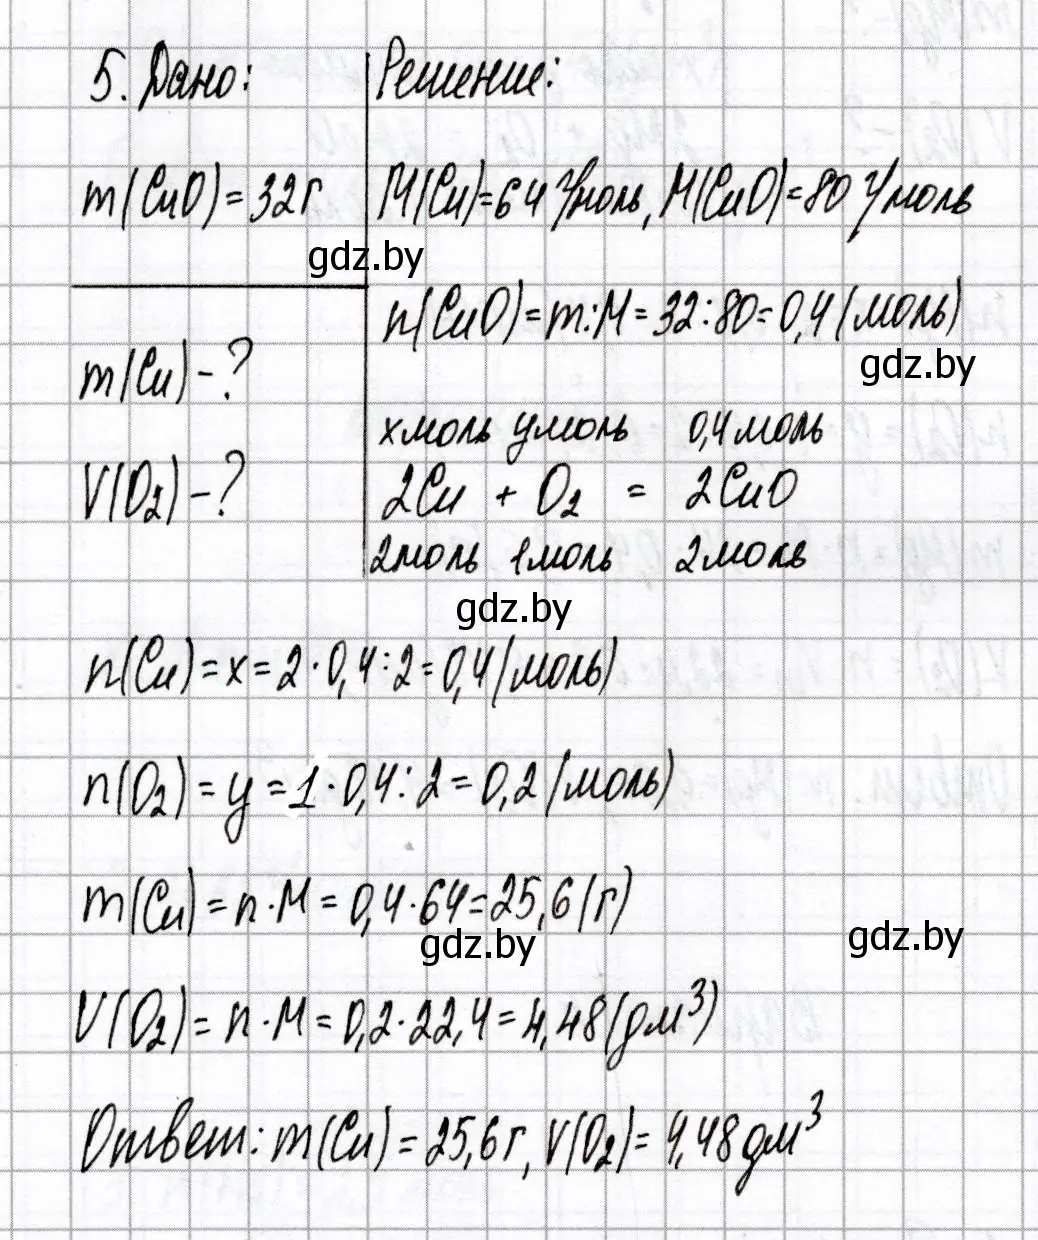 5. Дано:
Решение:
m(CuO) = 32 г
M(Cu) = 64 г/моль, M(CuO) = 80 г/моль
gdz.by
n(CuO) = m : M = 32 : 80 = 0,4 (моль)
gdz.by
m(Cu) - ?
x моль y моль 0,4 моль
V(O₂) - ?
2Cu + O₂ = 2CuO
2моль 1моль 2моль
gdz.by
n(Cu) = x = 2 · 0,4 : 2 = 0,4 (моль)
n(O₂) = y = 1 · 0,4 : 2 = 0,2 (моль)
m(Cu) = n · M = 0,4 · 64 = 25,6 (г)
gdz.by
gdz.by
V(O₂) = n · M = 0,2 · 22,4 = 4,48 (дм³)
Ответ: m(Cu) = 25,6 г, V(O₂) = 4,48 дм³